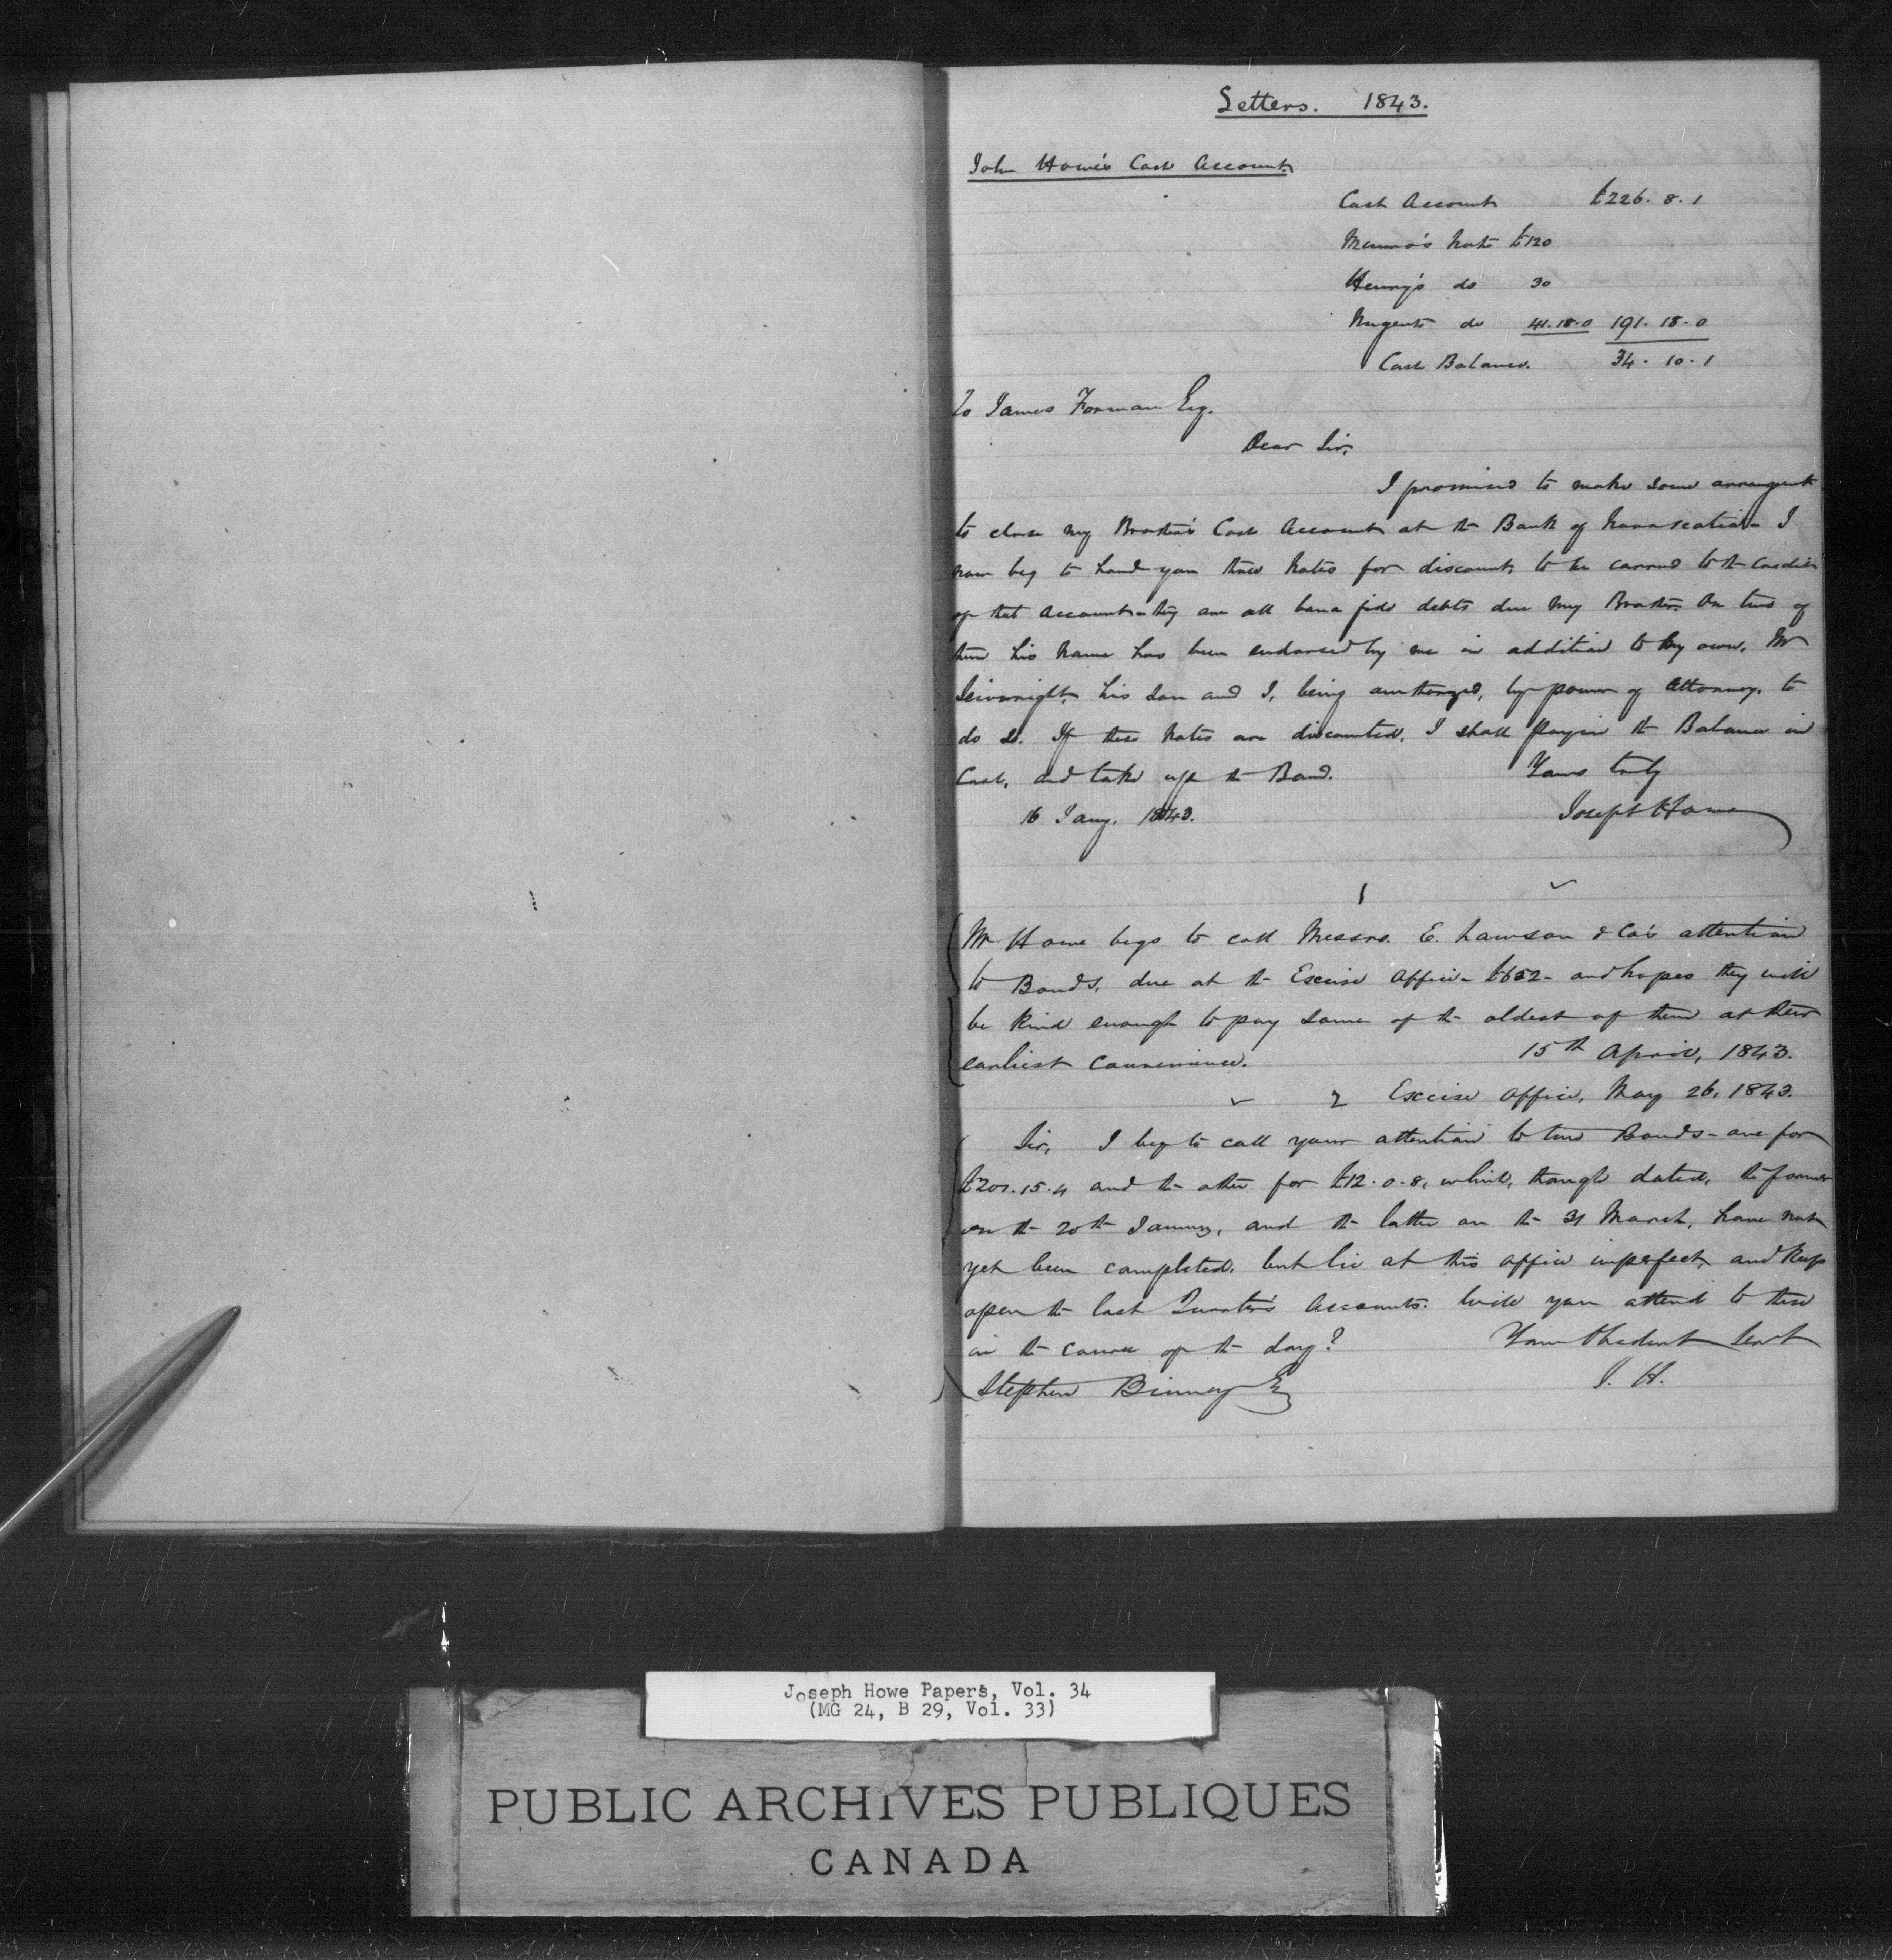 Letters. 1843.
John Howe's Cash Account.
Cash Account £226. 8. 1
Munro's Note £120
Henry's do 30
Nugents do 41.18.0 191. 18. 0
Cash Balance. 34. 10. 1
To James Forman Esq.
Dear Sir,
I promised to make some arrangent
to close my Brother's Cash Account at the Bank of Novascotia - I
now beg to hand you three Notes for discount, to be carried to the Credit
of that Account - they are all bona fide debts due my Brother. On two of
them his name has been endorsed by me in addition to my own, Mr
his son and I, being authorized, by power of Attorney, to
do so. If these Notes are discounted, I shall pay in the Balance in
Cash, and take up the Bond. Yours truly
16 Jany. 1843. Joseph Howe
1
Mr Howe begs to call Messrs. E. Lawson & Co's attention
to Bonds, due at the Excise Office - £652 - and hopes they will
be kind enough to pay some of the oldest of them at their
earliest convenience. 15th April, 1843.
2 Excise Office, May 26, 1843.
Sir, I beg to call your attention to two Bonds - one for
£201.15.4 and the other for £12.0.8, which, though dated, the former
on the 20th January, and the latter on the 31 March, have not
yet been completed, but lie at this office imperfect, and keep
open the last Quarter's Accounts. Will you attend to these
in the course of the day? Your Obedient Servt
Stephen Binney Esq J. H.
Joseph Howe Papers, Vol. 34
(MG 24, B 29, Vol. 33)
PUBLIC ARCHIVES PUBLIQUES
CANADA